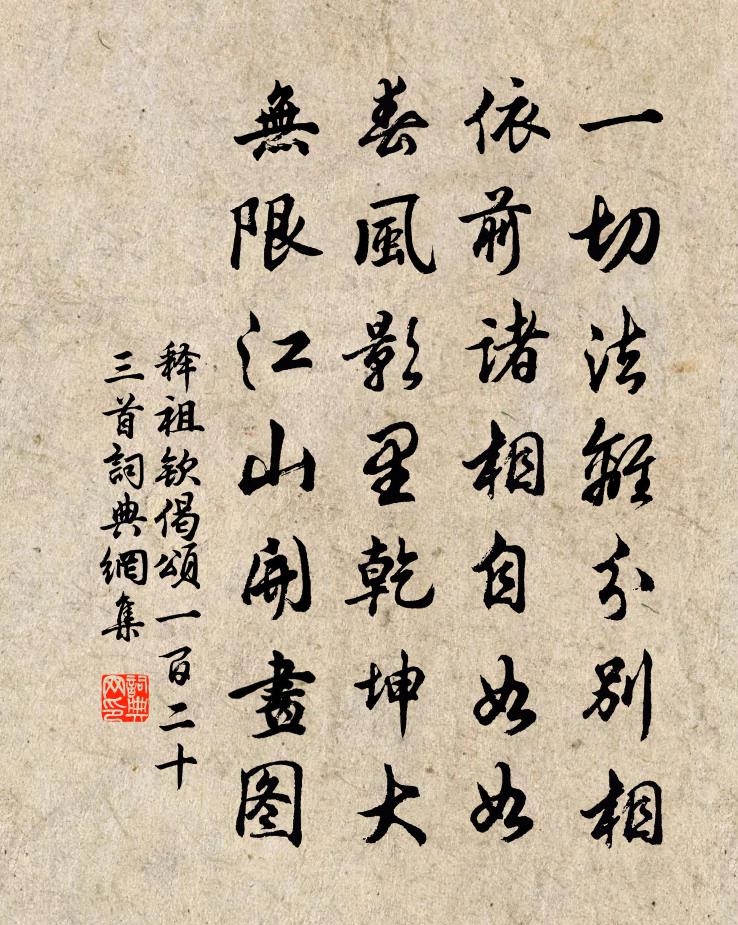 一切法離分別相
依前諸相自如如
春風影里乾坤大
無限江山開畫图
释祖钦偈頌一百二十
三首詞典網集
詞典
网印